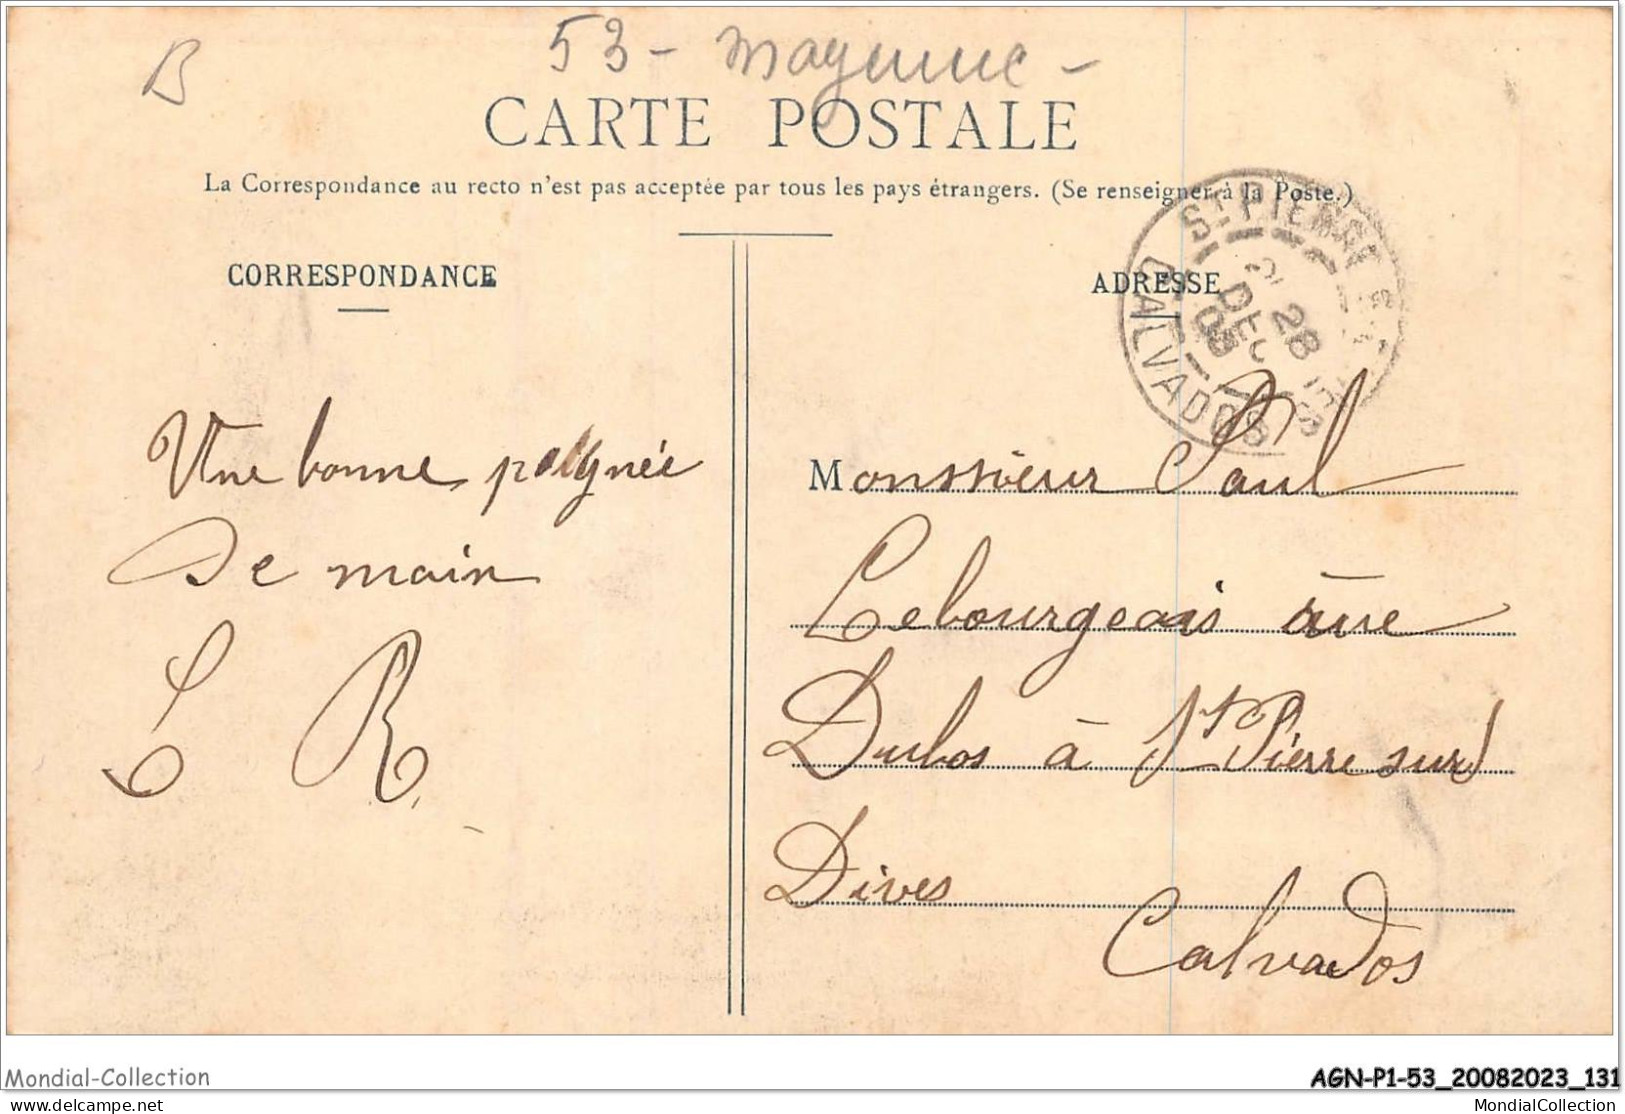 B
53 - Mayenne -
CARTE POSTALE
La Correspondance au recto n'est pas acceptée par tous les pays étrangers. (Se renseigner à la Poste.)
CORRESPONDANCE
ADRESSE
ST PIERRE
28
DEC
CALVADOS
Une bonne poignée
de main
L R.
Monssieur Paul
Lebourgeois rue
Dubos à St Pierre sur
Dives
Calvados
Mondial-Collection
AGN-P1-53_20082023_131
delcampe.net
MondialCollection